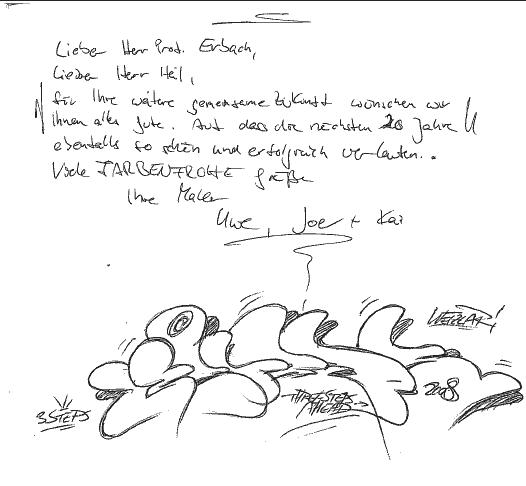 Lieber Herr Prof. Erbach,
Lieber Herr Heil,
für Ihre weitere gemeinsame Zukunft wünschen wir
Ihnen alles gute. Auf das die nächsten 20 Jahre
ebenfalls so schön und erfolgreich verlaufen..
Viele FARBENFROHE grüße
Ihre Maler
Uwe, Joe + Kai
WETZLAR!
2008
3STEPS
THREE STEPS
AHEAD